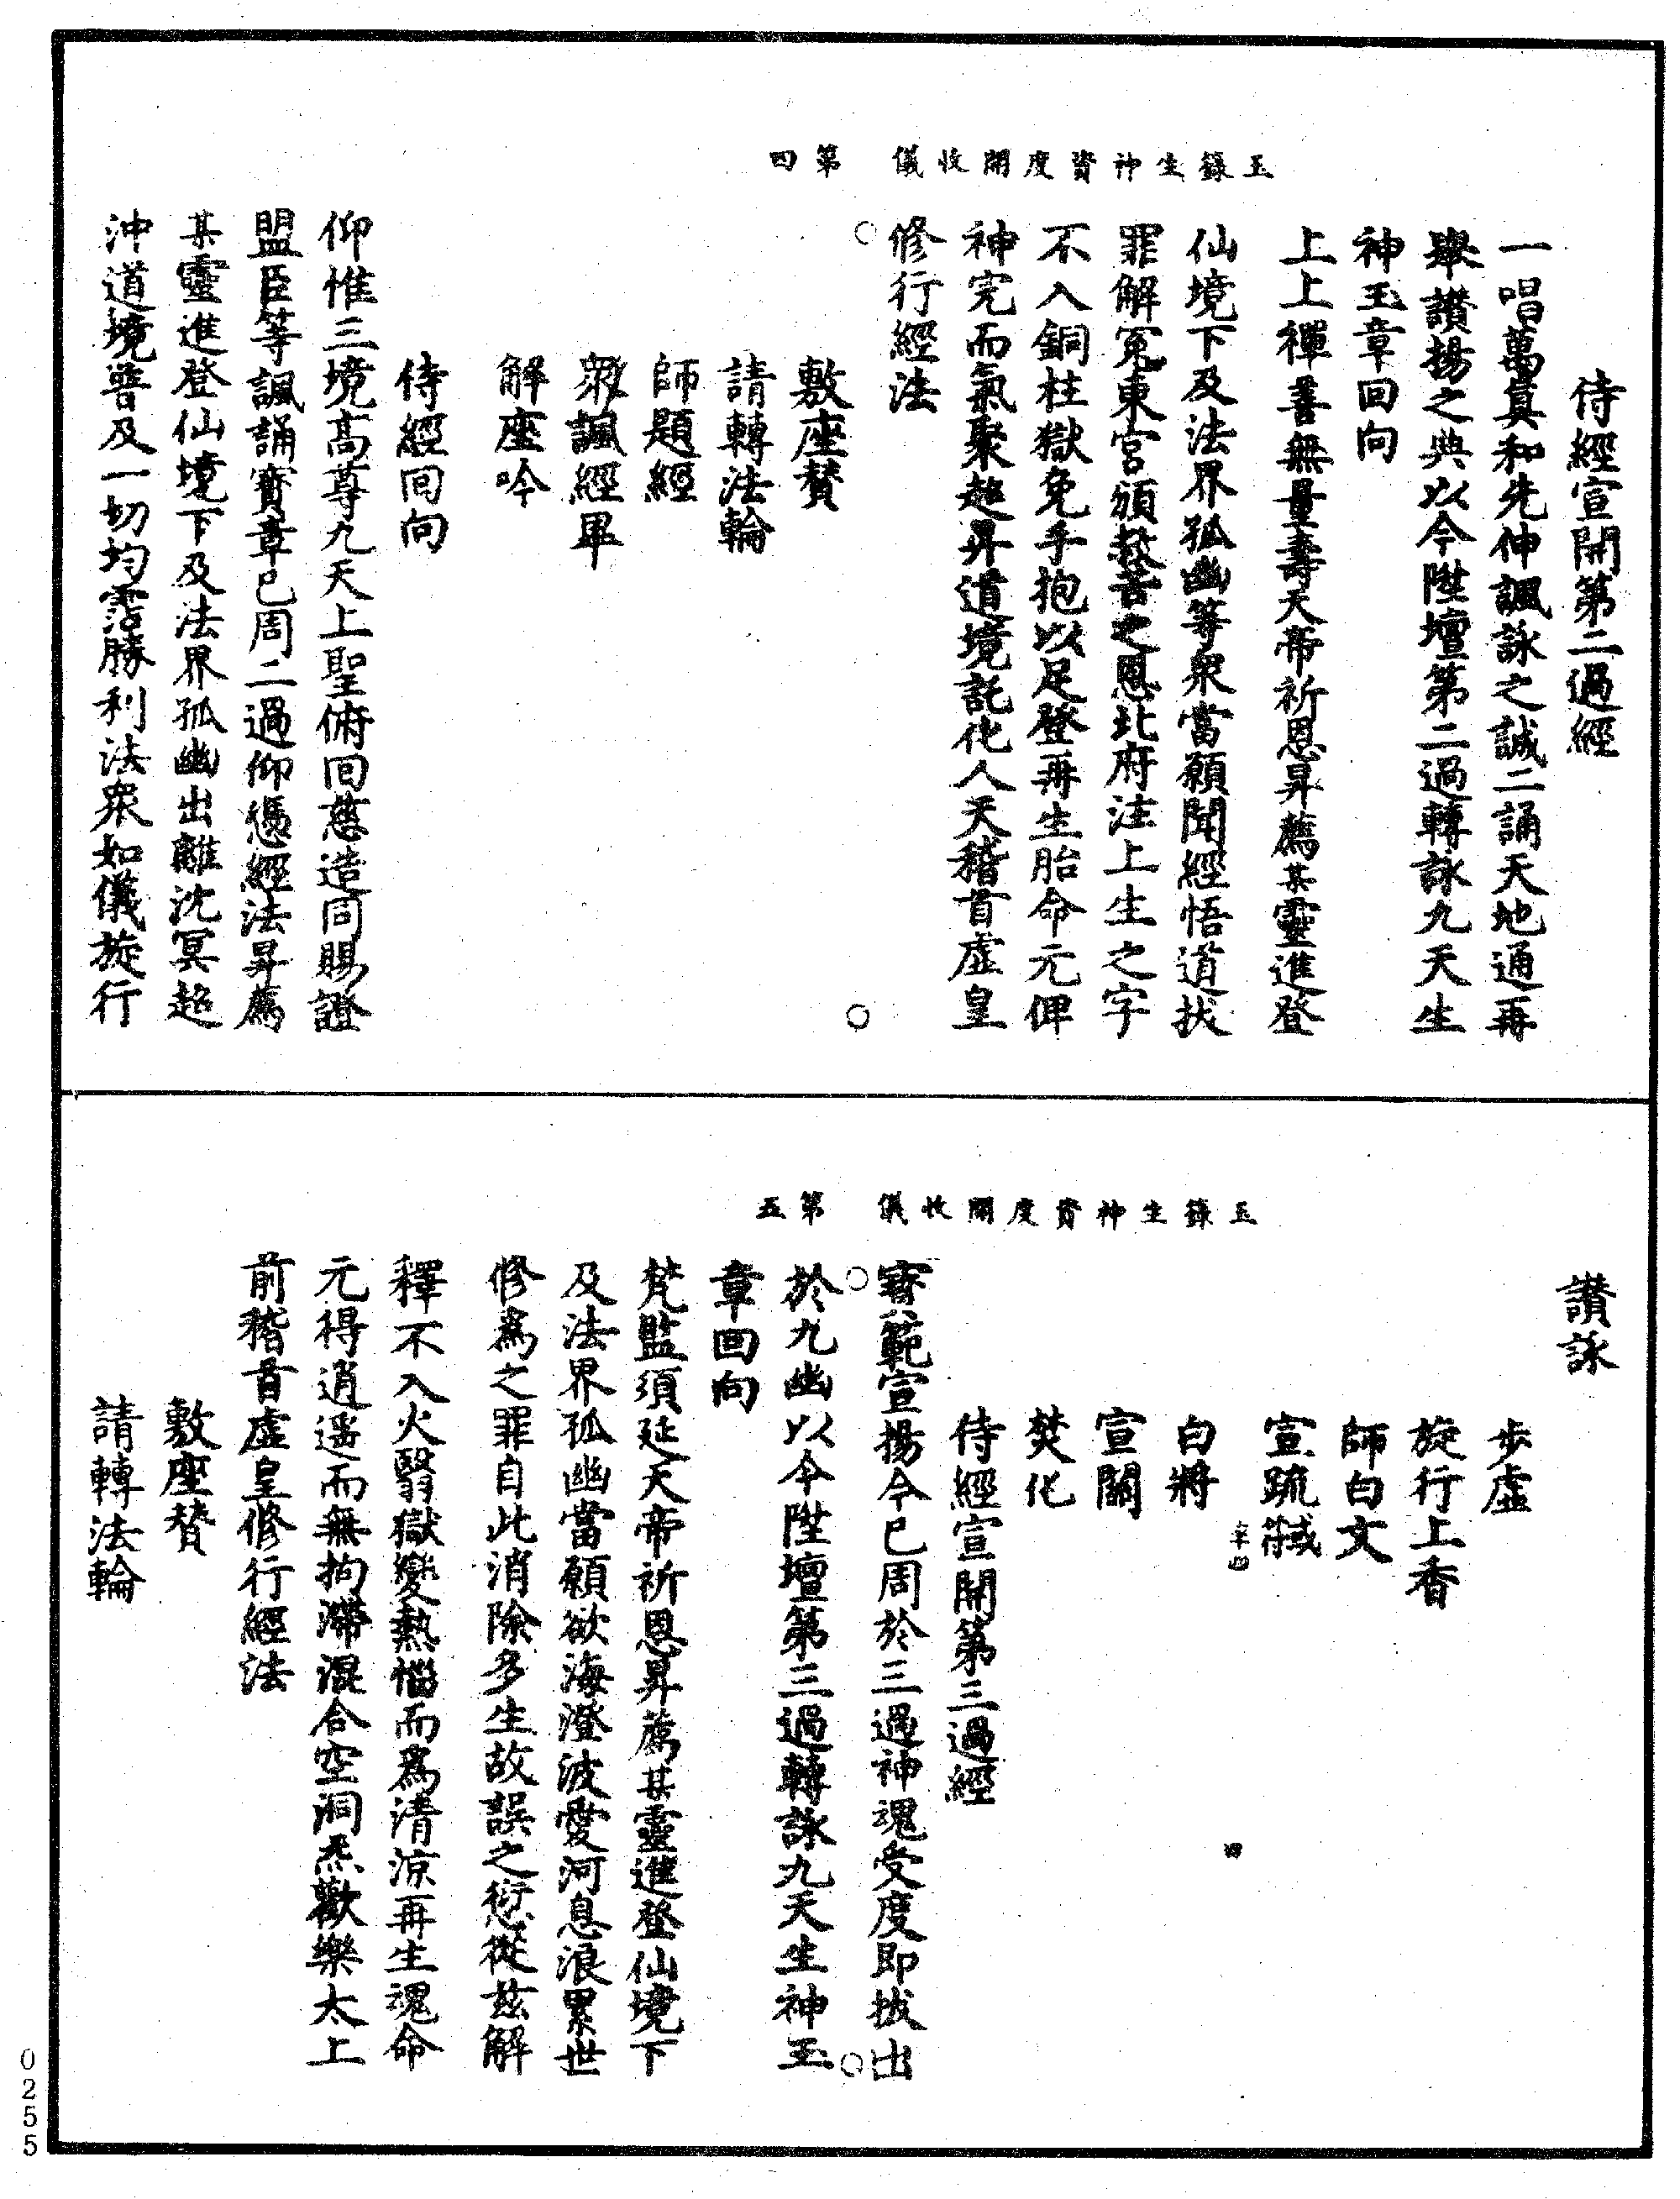 玉籙生神資度開收儀　第四
侍經宣開第二過經
一唱萬眞和先伸諷詠之誠二誦天地通再
舉讚揚之典以今陞壇第二過轉詠九天生
神玉章回向
上上禪善無量壽天帝祈恩昇薦某靈進登
仙境下及法界孤幽等衆當願聞經悟道拔
罪解冤東宮頒救苦之恩北府注上生之字
不入銅柱獄免手抱以足登再生胎命元俾
神完而氣聚超昇道境託化人天稽首虛皇
修行經法
敷座贊
請轉法輪
師題經
衆諷經畢
解座吟
侍經回向
仰惟三境高尊九天上聖俯回慈造同賜證
盟臣等諷誦寶章已周二過仰憑經法昇薦
某靈進登仙境下及法界孤幽出離沈冥超
沖道境普及一切均霑勝利法衆如儀旋行
玉籙生神資度開收儀　第五
讚詠
步虛
旋行上香
師白文
宣疏
四
白將
宣關
焚化
侍經宣開第三過經
寶範宣揚今已周於三過神魂受度即拔出
於九幽以今陞壇第三過轉詠九天生神玉
章回向
梵監須延天帝祈恩昇薦某靈進登仙境下
及法界孤幽當願欲海澄波愛河息浪累世
修爲之罪自此消除多生故誤之愆從茲解
釋不入火翳獄變熱惱而爲清涼再生魂命
元得逍遙而無拘滯混合空洞炁歡樂太上
前稽首虛皇修行經法
敷座贊
請轉法輪
0255